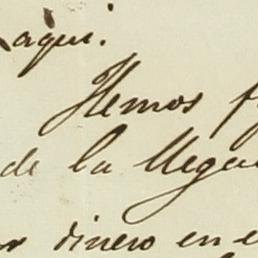 aqui.
Hemos
de la llega
dinero en e